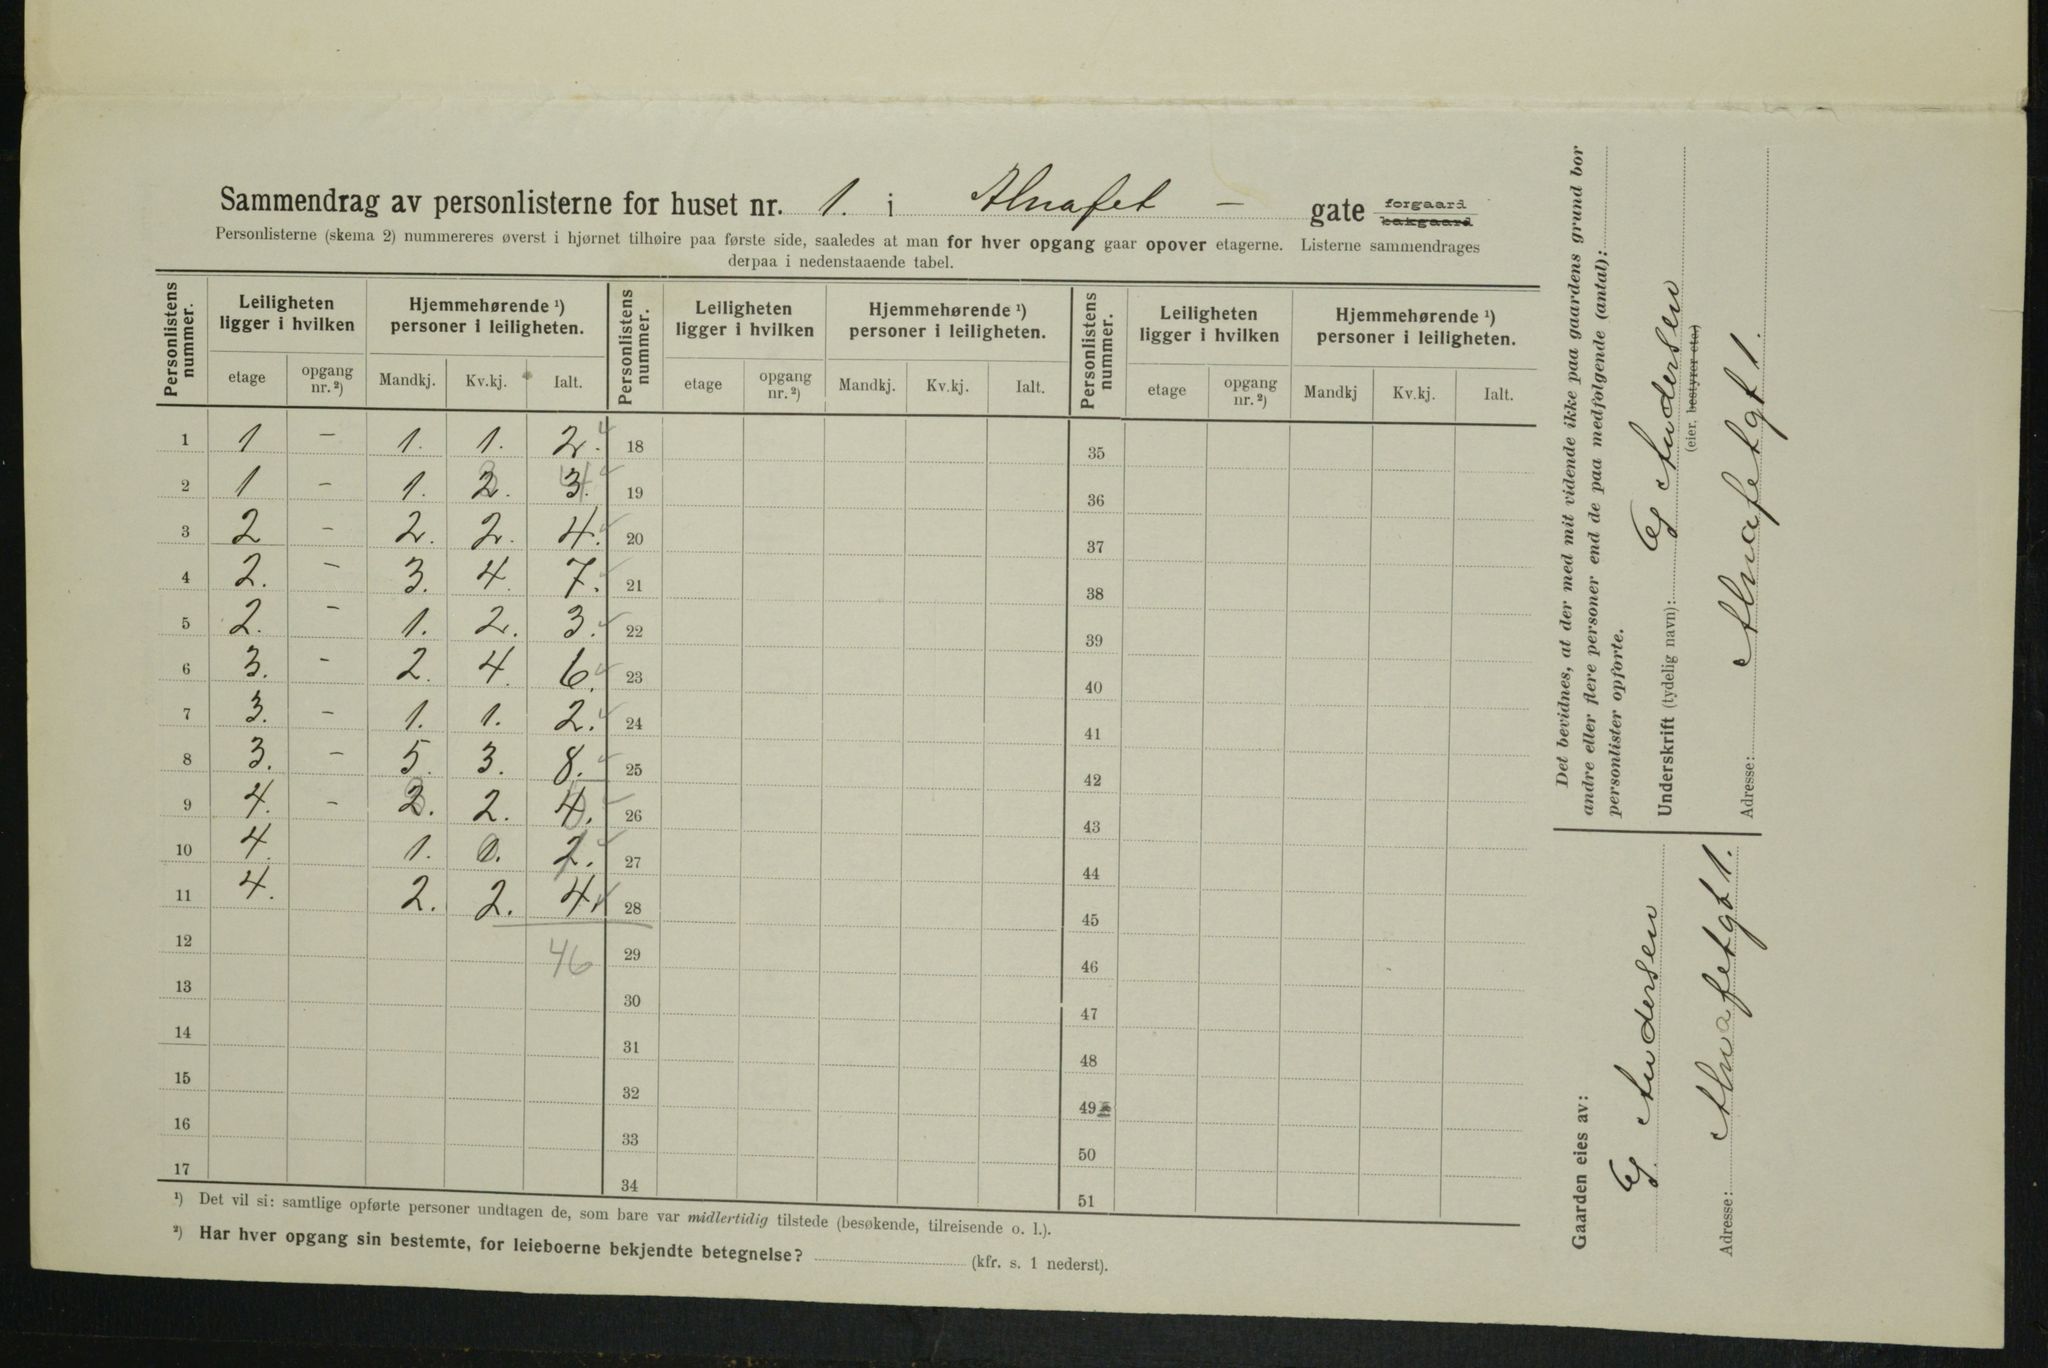 Sammendrag av personlisterne for huset nr. 1. i Almafet - gate forgaard bakgaard
Personlisterne (skema 2) nummereres øverst i hjørnet tilhøire paa første side, saaledes at man for hver opgang gaar opover etagerne. Listerne sammendrages
derpaa i nedenstaaende tabel.
Personlistens nummer. Leiligheten ligger i hvilken Hjemmehørende ¹) personer i leiligheten. Personlistens nummer. Leiligheten ligger i hvilken Hjemmehørende ¹) personer i leiligheten. Personlistens nummer. Leiligheten ligger i hvilken Hjemmehørende ¹) personer i leiligheten.
etage opgang nr. ²) Mandkj. Kv.kj. Ialt. etage opgang nr. ²) Mandkj. Kv.kj. Ialt. etage opgang nr. ²) Mandkj Kv.kj. Ialt.
1 1 - 1. 1. 2. 18 35
2 1 - 1. 2. 3. 19 36
3 2 - 2. 2. 4. 20 37
4 2. - 3. 4. 7. 21 38
5 2. - 1. 2. 3. 22 39
6 3. - 2. 4. 6. 23 40
7 3. - 1. 1. 2. 24 41
8 3. - 5. 3. 8. 25 42
9 4. - 2. 2. 4. 26 43
10 4. 1. 27 44
11 4. 2. 2. 4. 28 45
12 46 29 46
13 30 47
14 31 48
15 32 49
16 33 50
17 34 51
¹) Det vil si: samtlige opførte personer undtagen de, som bare var midlertidig tilstede (besøkende, tilreisende o. l.).
²) Har hver opgang sin bestemte, for leieboerne bekjendte betegnelse? (kfr. s. 1 nederst).
Det bevidnes, at der med mit vidende ikke paa gaardens grund bor
andre eller flere personer end de paa medfolgende (antal):
personlister opforte.
Underskrift (tydelig navn): G Andersen
(eier, bestyrer etc.)
Adresse: Almafetgt 1.
Gaarden eies av:
G. Andersen
Adresse: Almafetgt 1.